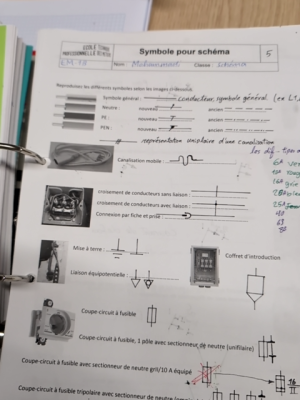 ECOLE TECHNI
PROFESSIONNELLE DES METIERS
Symbole pour schéma
5
Nom :
Classe :
Reproduisez les différents symboles selon les images ci-dessous.
Symbole général : conducteur symbole général (ex L1,
Neutre : nouveau ancien
PE : nouveau ancien
PEN : nouveau ancien
représentation unifilaire d'une canalisation
Canalisation mobile :
Croisement de conducteurs sans liaison :
Croisement de conducteurs avec liaison :
Connexion par fiche et prise :
Mise à terre :
Coffret d'introduction
Liaison équipotentielle :
Coupe-circuit à fusible
Coupe-circuit à fusible, 1 pôle avec sectionneur de neutre (unifilaire)
Coupe-circuit à fusible avec sectionneur de neutre gril/10 A équipé
Coupe-circuit à fusible tripolaire avec sectionneur de neutre